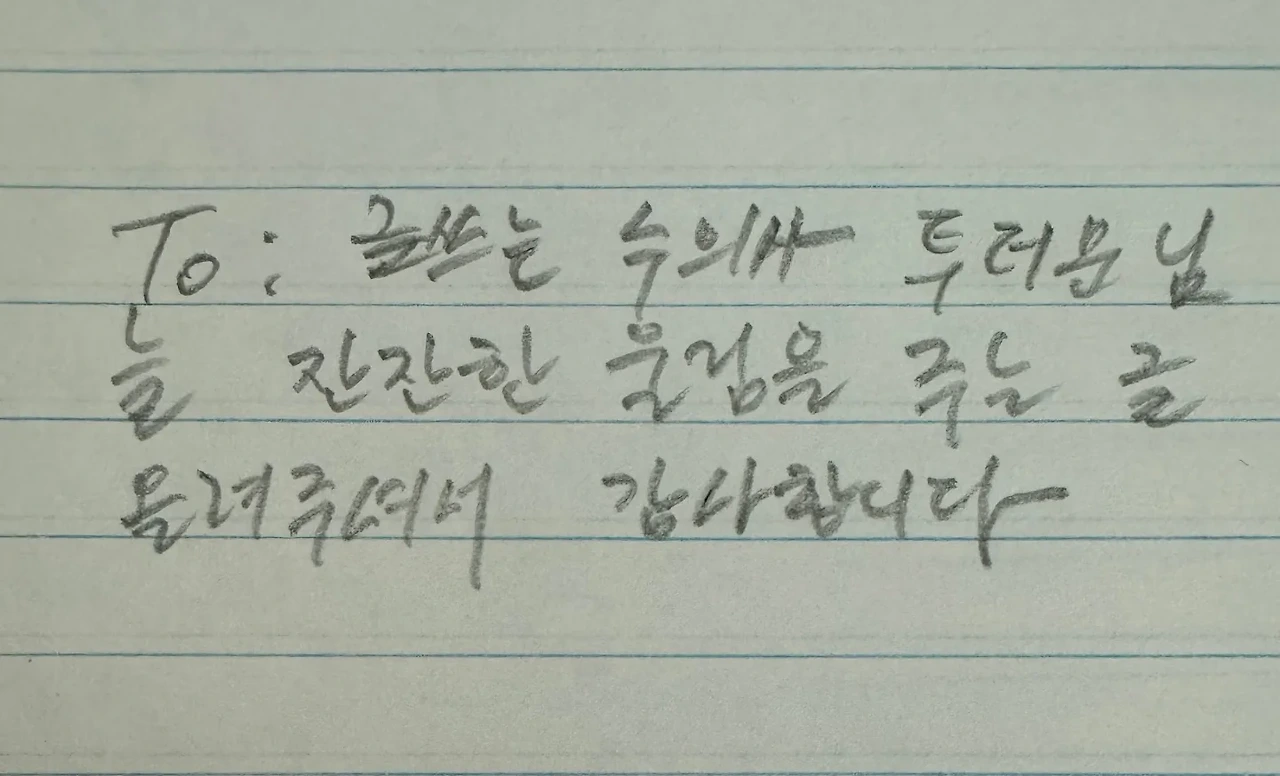 To: 글쓰는 수의사 투더문님
늘 잔잔한 울림을 주는 글
올려주셔서 감사합니다